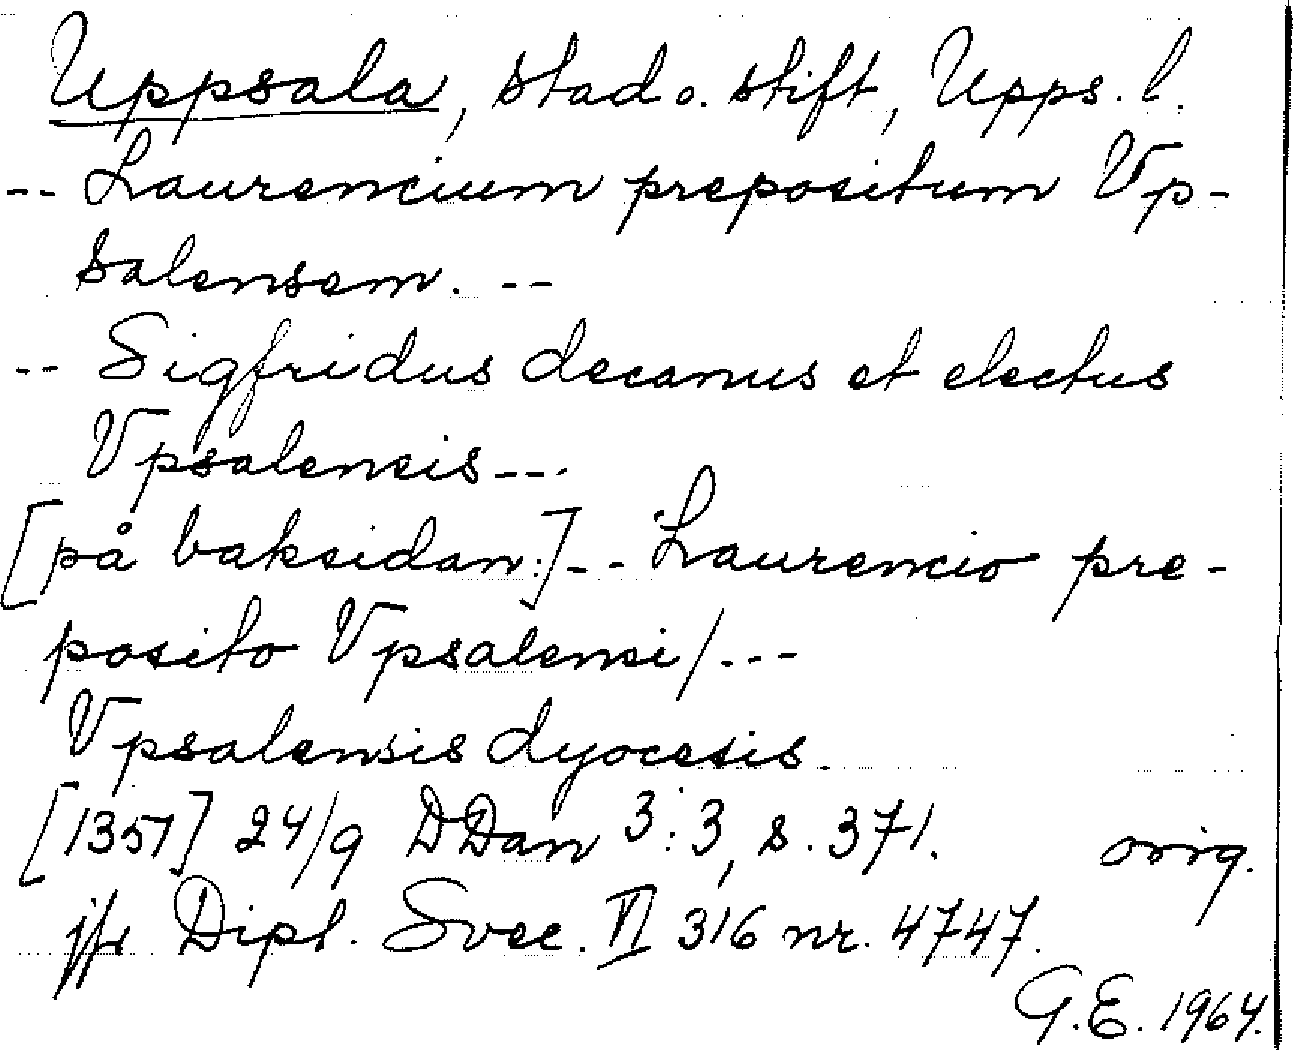 Uppsala, stad o. stift, Upps. l.
-- Laurencium prepositum Vp-
salensem. --
-- Sigfridus decanus et electus
Vpsalensis ---
[på baksidan:] -- Laurencio pre-
posito Vpsalensi/ ---
Vpsalensis dyocesis.
[1351] 24/9 DDan 3:3, s. 371. orig.
jfr Dipl. Svec. VI 316 nr. 4747.
G.E. 1964.